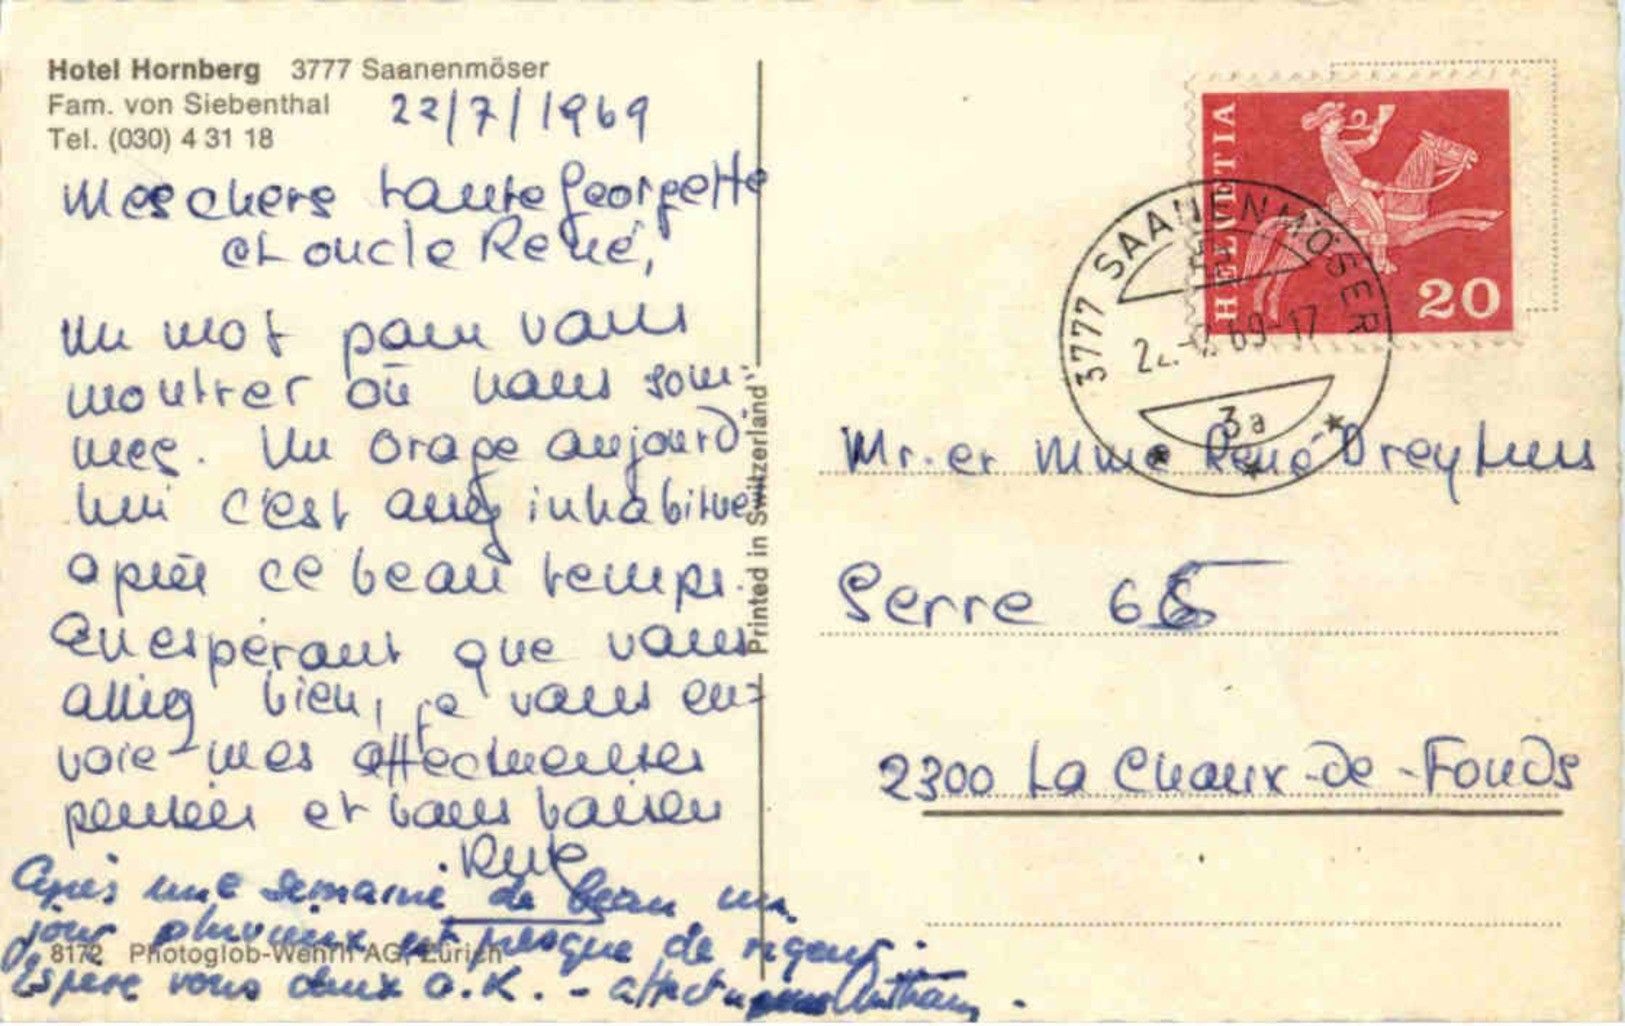 Hotel Hornberg 3777 Saanenmöser
Fam. von Siebenthal
Tel. (030) 4 31 18
22/7/1969
Mes chers tante Georgette
et oncle René,
Un mot pour vous
montrer où nous som-
mes. Un orage aujourd'
hui c'est assez inhabitue
après ce beau temps.
En espérant que vous
alliez bien, je vous en-
voie mes affectueuses
pensées et bons baisers
Après une semaine de beau un
jour pluvieux est presque de rigeur.
Espère vous deux O.K. -
8172 Photoglob-Wehrli AG, Zürich
Printed in Switzerland
HELVETIA
20
3777 SAANENMÖSER
22. 69-17
3a
Mr. et Mme René Dreyfus
Serre 65
2300 La Chaux-de-Fonds